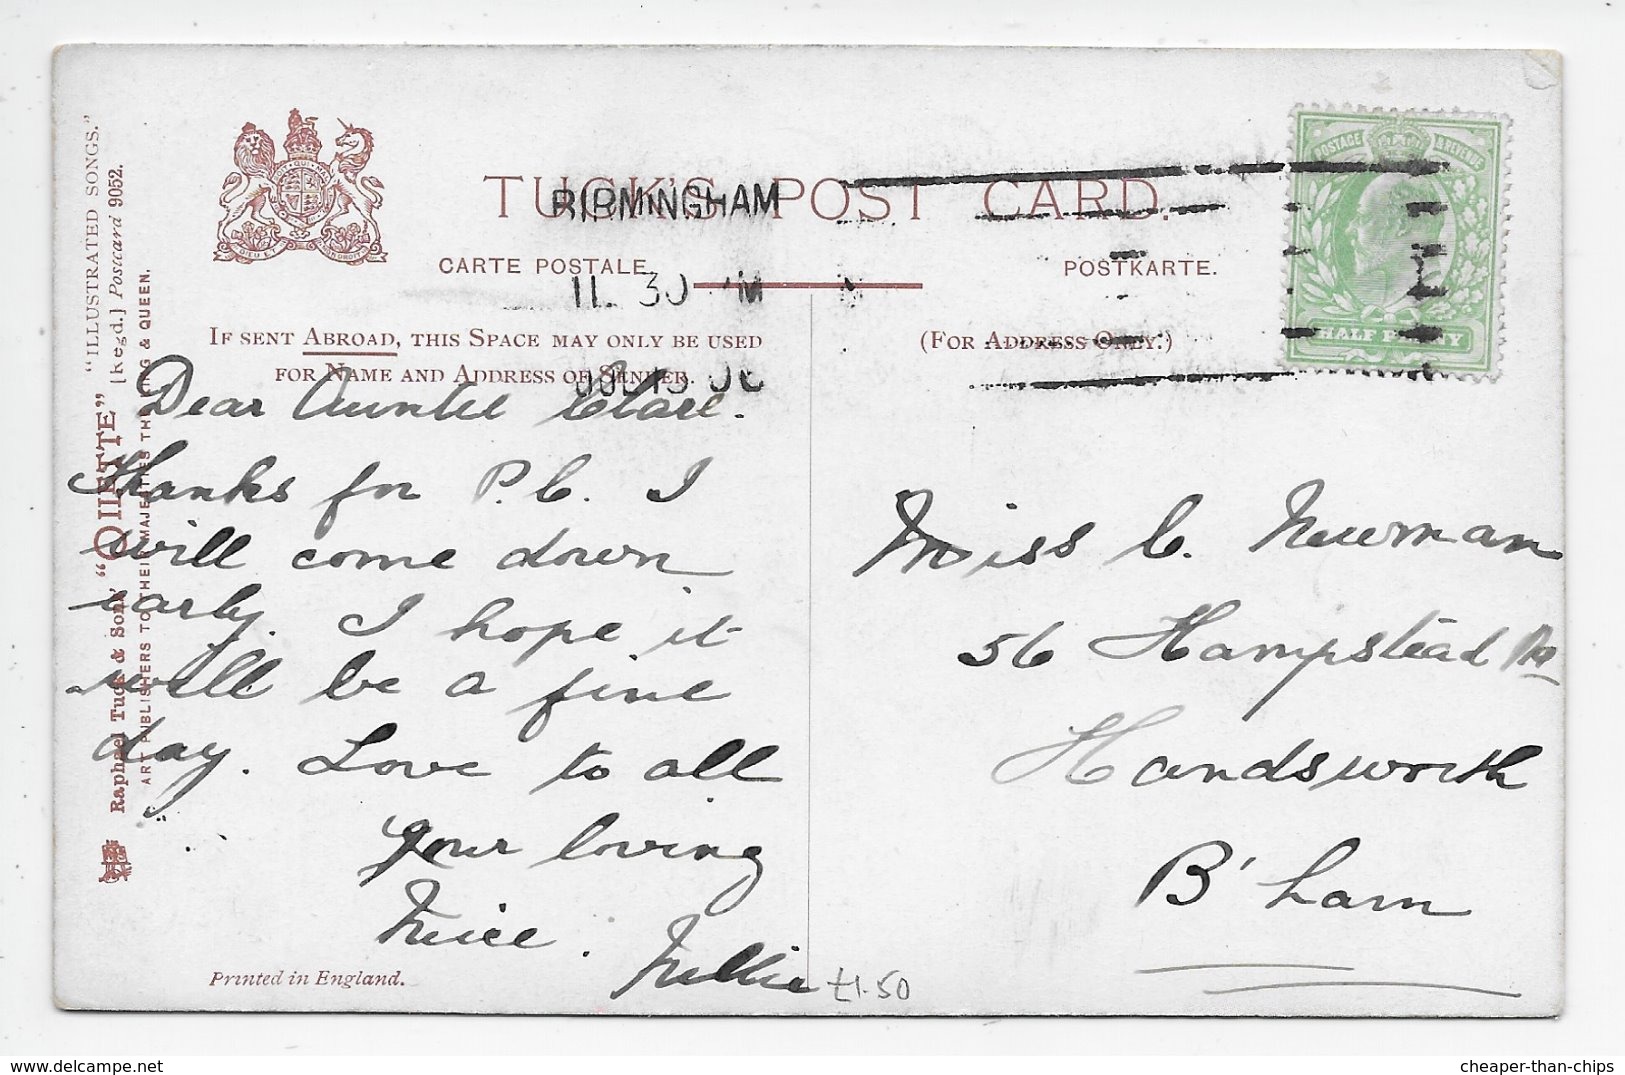 TUCK'S POST CARD.
BIRMINGHAM
CARTE POSTALE
POSTKARTE.
11. 30
IF SENT ABROAD, THIS SPACE MAY ONLY BE USED
FOR NAME AND ADDRESS OF SENDER.
(FOR ADDRESS ONLY.)
POSTAGE & REVENUE
HALF PENNY
Dear Auntie Clare.
Thanks for P.C. I
will come down
early. I hope it
will be a fine
day. Love to all
your loving
Neice.
Nellie
Miss C. Newman
56 Hampstead Rd
Handsworth
B'ham
£1.50
Printed in England.
"ILLUSTRATED SONGS."
Raphael Tuck & Sons' "OILETTE" [Regd.] Postcard 9052.
ART PUBLISHERS TO THEIR MAJESTIES THE KING & QUEEN.
DIEU ET MON DROIT
cheaper-than-chips